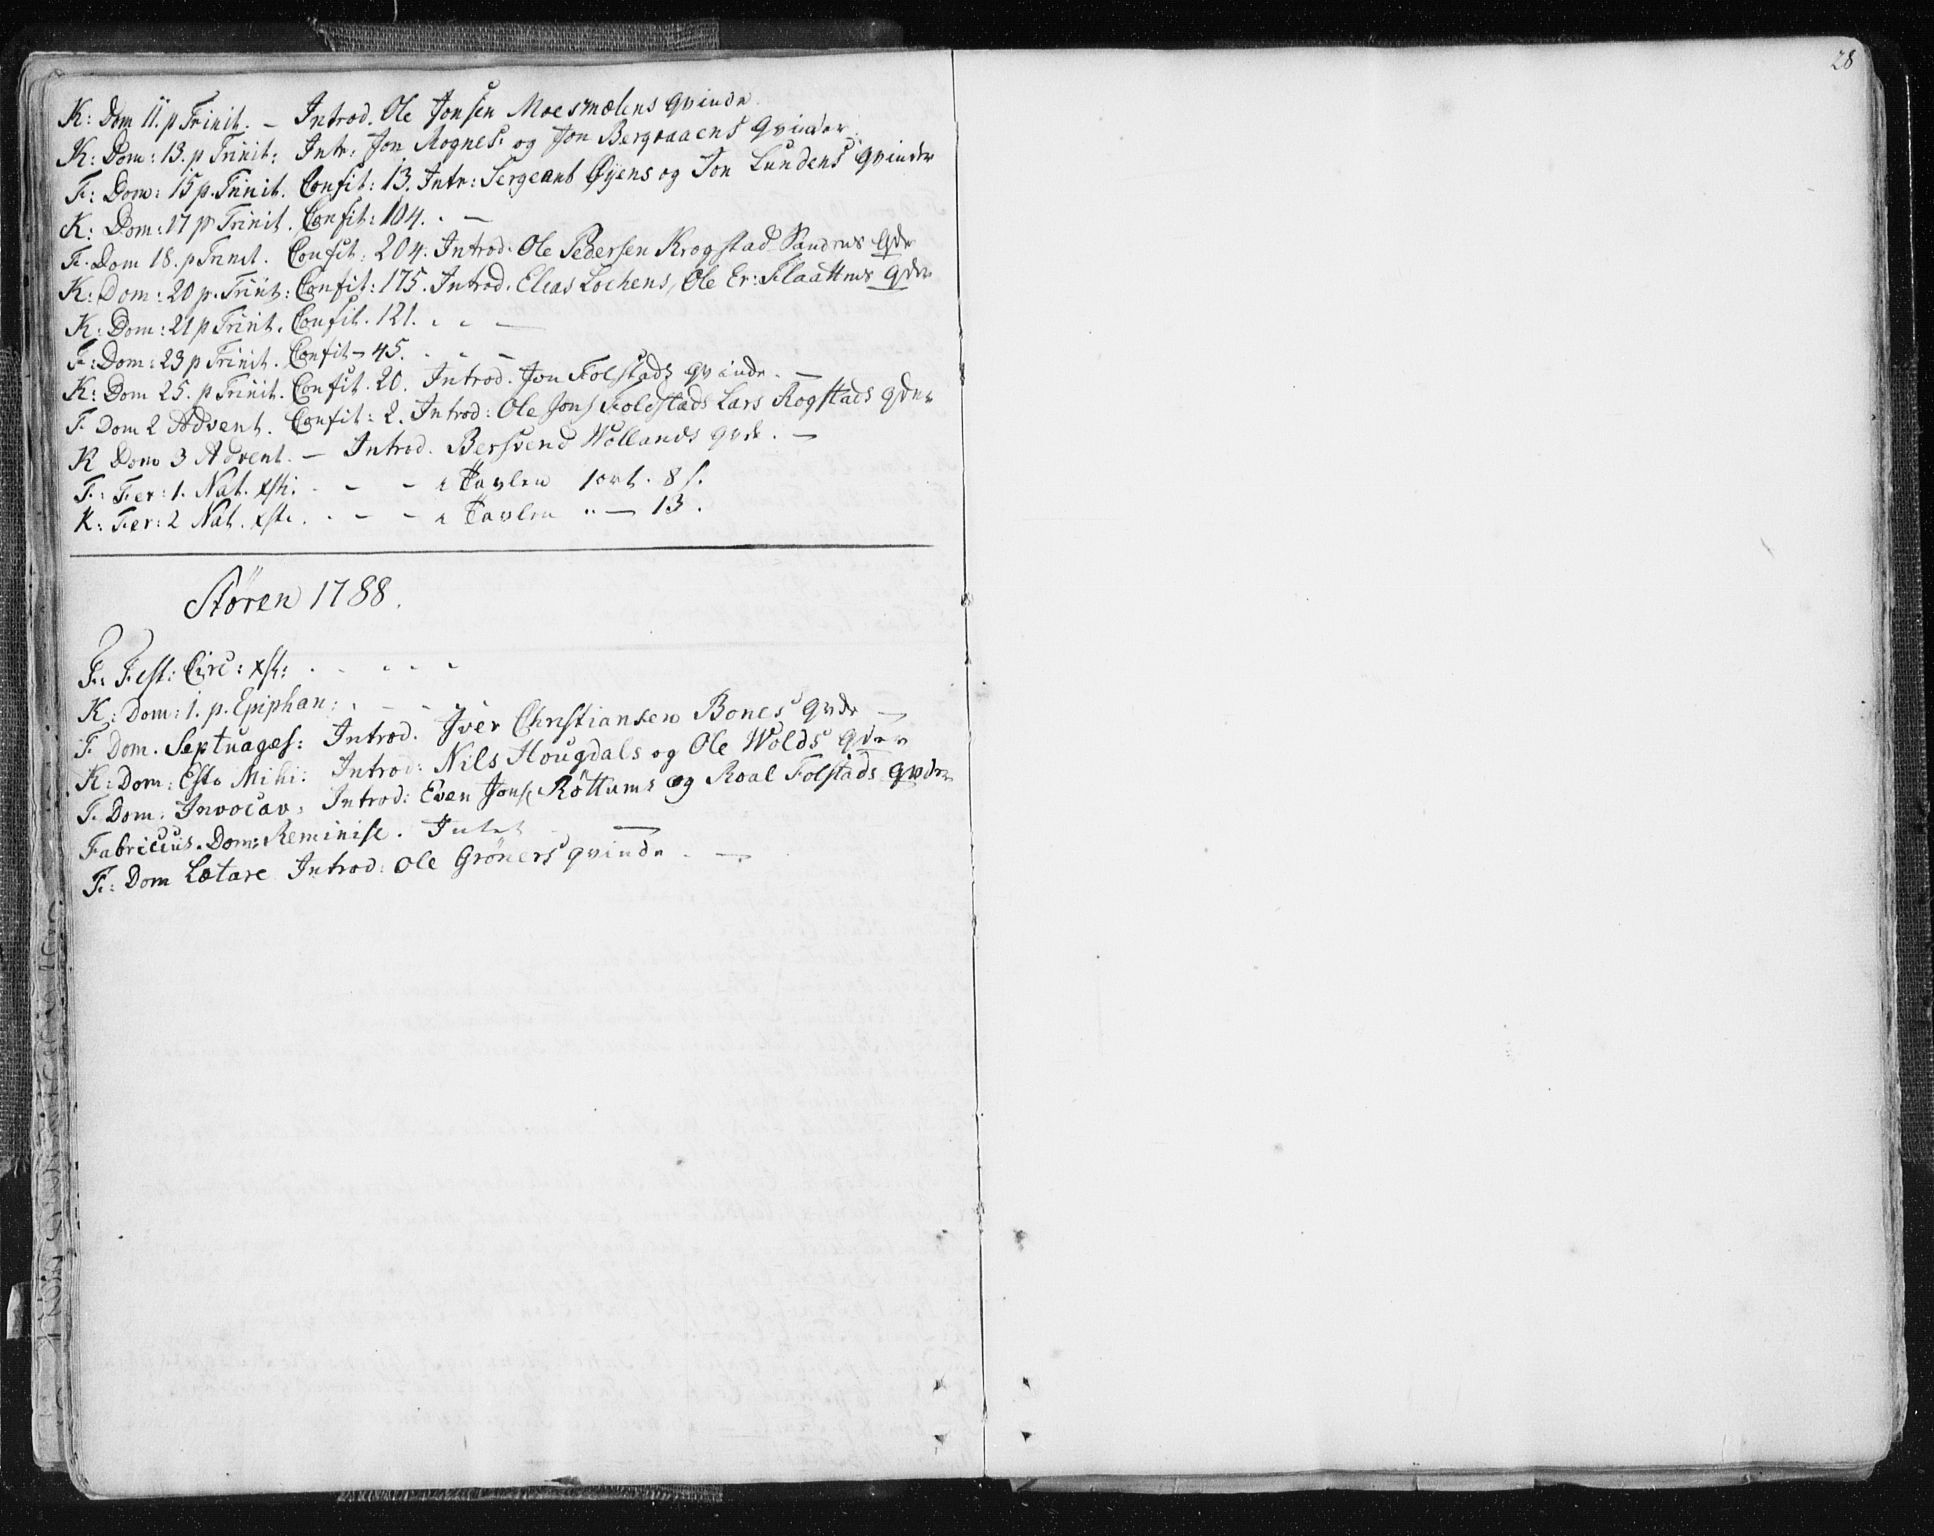 28
K: Dom 11. p Trinit. – Introd. Ole Jonsen Moesmælens qvinde.
K: Dom: 13. p Trinit: Intr: Jon Rognes: og Jon Bergraaens qvinder.
F: Dom: 15 p. Trinit. Confit: 13. Intr: Sergeant Øyens og Jon Lundens qvinder
K: Dom: 17 p Trinit. Confit: 104. . –
F. Dom 18. p Trinit. Confit: 204. Introd. Ole Pedersen Krogstad Sandnes qvde
K: Dom: 20 p. Trinit: Confit: 175. Introd. Elias Lochens, Ole Er: Flaattens qvdr
K: Dom: 21 p Trinit. Confit. 121. . . –
F: Dom: 23 p Trinit. Confit – 45. . – –
K: Dom 25. p Trinit. Confit. 20. Introd. Jon Folstads qvinde. –
F. Dom 2 Advent. Confit: 2. Introd: Ole Jons Foldstads Lars Rogstads qvdr
K Dom 3 Advent. – Introd. Bersvend Wollands qvde. –
F: Fer: 1. Nat. xsti. . – – i Tavlen 1 ort. 8 s.
K: Fer: 2 Nat. xsti. . – – i Tavlen " – 13.
Støren 1788.
F. Fest: Circ: xsti: . . . . .
K: Dom: 1. p. Epiphan: . – – –
F. Dom. Septuages: Introd. Iver Christiansen Bones qvde –
K: Dom: Esto Mihi: Introd: Nils Hougdals og Ole Wolds qvdr
F. Dom: Invocav: Introd: Even Jons Røttums og Roal Folstads qvdr
Fabricius. Dom: Reminisc. Intet –
F: Dom Lætare Introd: Ole Grøners qvinde . –